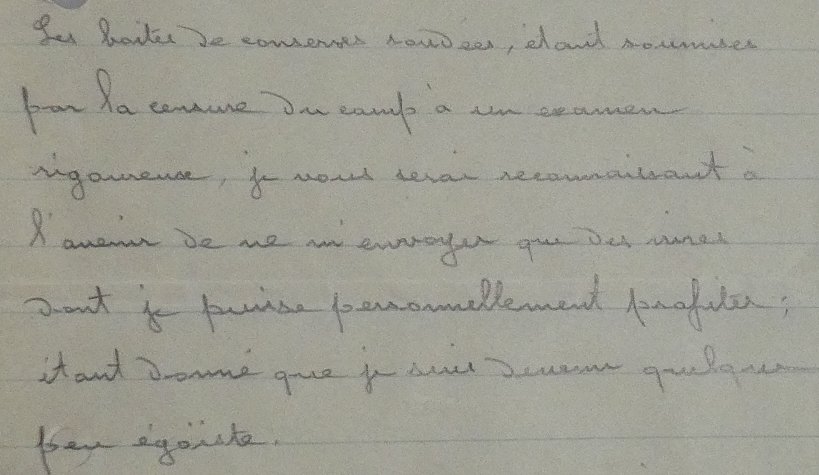 Les boîtes de conserves soudées, étant soumises
par la censure du camp à un examen
rigoureux, je vous serai reconnaissant à
l'avenir de ne m'envoyer que des vivres
dont je puisse personnellement profiter ;
étant donné que je suis devenu quelque
peu égoïste.